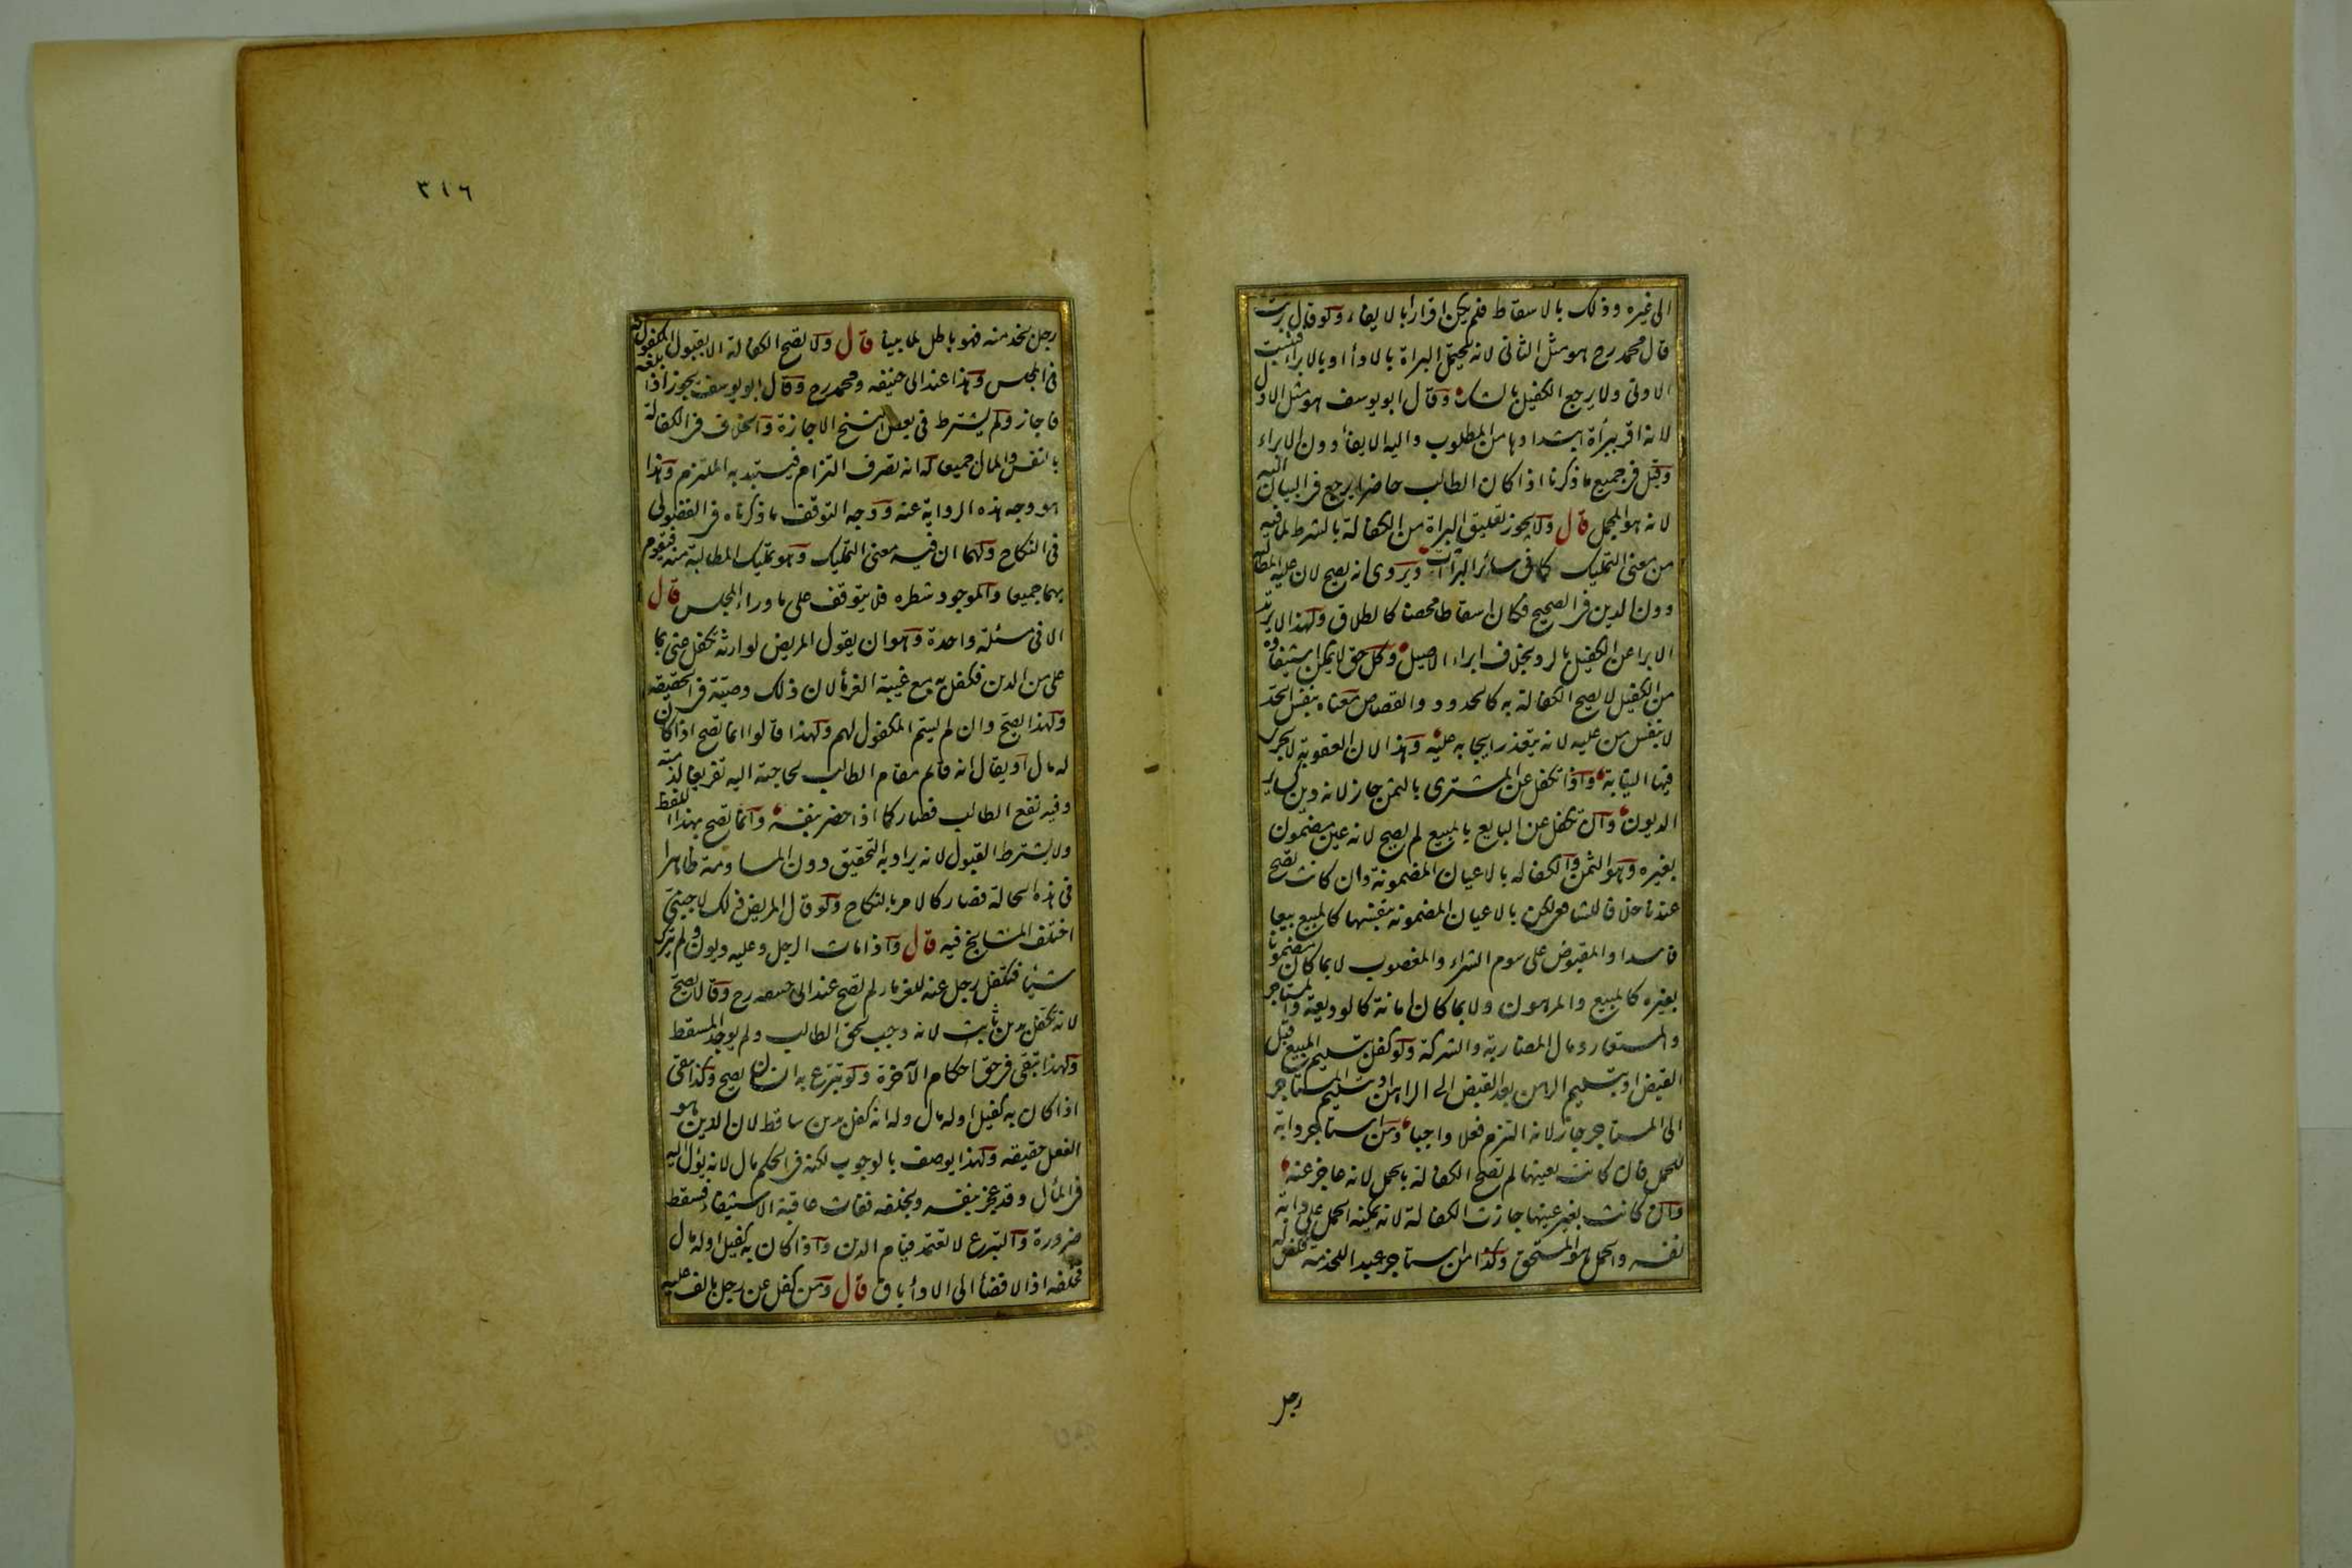 الى غيره وذلك بالاسقاط فلم يكن اقرارا بالايفاء ولو قال برئت
قال محمد رح هو مثل الثانى لانه يحتمل البراة بالادأ او بالابراء فيثبت
الادنى ولا يرجع الكفيل بالشك وقال ابو يوسف هو مثل الاول
لانه اقر ببرأة ابتداوها من المطلوب واليه الايفأ دون الابراء
وقيل فى جميع ما ذكرنا اذا كان الطالب حاضرا يرجع فى البيان اليه
لانه هو المجمل قال ولا يجوز تعليق البراة من الكفالة بالشرط لما فيه
من معنى التمليك كما فى سائر البرآت ويروى انه يصح لان عليه المطالبة
دون الدين فى الصحيح فكان اسقاطا محضا كالطلاق ولهذا لا يرتد
الابرا عن الكفيل بالرد بخلاف ابراء الاصيل وكل حق لا يمكن استيفاوه
من الكفيل لا يصح الكفالة به كالحدود والقصاص معناه بنفس الحد
لا بنفس من عليه لانه يتعذر ايجابه عليه وهذا لان العقوبة لا يجرى
فيها النيابة واذا تكفل عن المشترى بالثمن جاز لانه دين كساير
الديون وان تكفل عن البايع بالمبيع لم يصح لانه عين مضمون
بغيره وهو الثمن والكفاله بالاعيان المضمونة وان كانت تصح
عندنا خلافا للشافعى لكن بالاعيان المضمونه بنفسها كالمبيع بيعا
فاسدا والمقبوض على سوم الشراء والمغصوب لا بما كان مضمونا
بغيره كالمبيع والمرهون ولا بما كان امانة كالوديعة والمستاجر
والمستعار ومال المضاربة والشركة ولو كفل بتسليم المبيع قبل
القبض او بتسليم الرهن بعد القبض الى الراهن او بتسليم المستاجر
الى المستاجر جاز لانه التزم فعلا واجبا ومن استاجر دابة
للحمل فان كانت بعينها لم تصح الكفالة بالحمل لانه عاجز عنه
وان كانت بغير عينها جازت الكفالة لانه يمكنه الحمل على دابة
نفسه والحمل هو المستحق وكذا من استاجر عبدا للخدمة فكفل له
رجل
٣١٦
رجل بخدمته فهو باطل لما بينا قال ولا تصح الكفالة الا بقبول المكفول له
فى المجلس وهذا عند ابى حنيفه ومحمد رح وقال ابو يوسف يجوز اذا بلغه
فاجاز ولم يشترط فى بعض النسخ الاجازة والخلاف فى الكفالة
بالنفس والمال جميعا له انه تصرف التزام فيستبد به الملتزم وهذا
هو وجه هذه الرواية عنه ووجه التوقف ما ذكرناه فى الفضولى
فى النكاح ولهما ان فيه معنى التمليك وهو تمليك المطالبة منه فيقوم
بهما جميعا والموجود شطره فلا يتوقف على ما وراء المجلس قال
الا فى مسئلة واحدة وهو ان يقول المريض لوارثه تكفل عنى بما
على من الدين فكفل به مع غيبة الغرمأ لان ذلك وصية فى الحقيقه
ولهذا يصح وان لم يسم المكفول لهم ولهذا قالوا انما تصح اذا كان
له مال او يقال انه قائم مقام الطالب لحاجته اليه تفريغا لذمته
وفيه نفع الطالب فصار كما اذا حضر بنفسه وانما تصح بهذا اللفظ
ولا يشترط القبول لانه يراد به التحقيق دون المساومة ظاهرا
فى هذه الحالة فصار كالامر بالنكاح ولو قال المريض ذلك لاجنبى
اختلف المشايخ فيه قال واذا مات الرجل وعليه ديون ولم يترك
شيئا فتكفل رجل عنه للغرماء لم تصح عند ابى حنيفه رح وقالا يصح
لانه تكفل بدين ثابت لانه وجب لحق الطالب ولم يوجد المسقط
ولهذا تبقى فى حق احكام الآخرة ولو تبرع به انسان يصح وكذا يبقى
اذا كان به كفيل او له مال وله انه كفل بدين ساقط لان الدين هو
الفعل حقيقه ولهذا يوصف بالوجوب لكنه فى الحكم مال لانه يؤل اليه
فى المأل وقد عجز بنفسه وبخلفه ففات عاقبة الاستيفاء فيسقط
ضرورة والتبرع لا تعتمد قيام الدين واذا كان به كفيل او له مال
فخلفه اذ الافضأ الى الادأ باق قال ومن كفل عن رجل بالف عليه